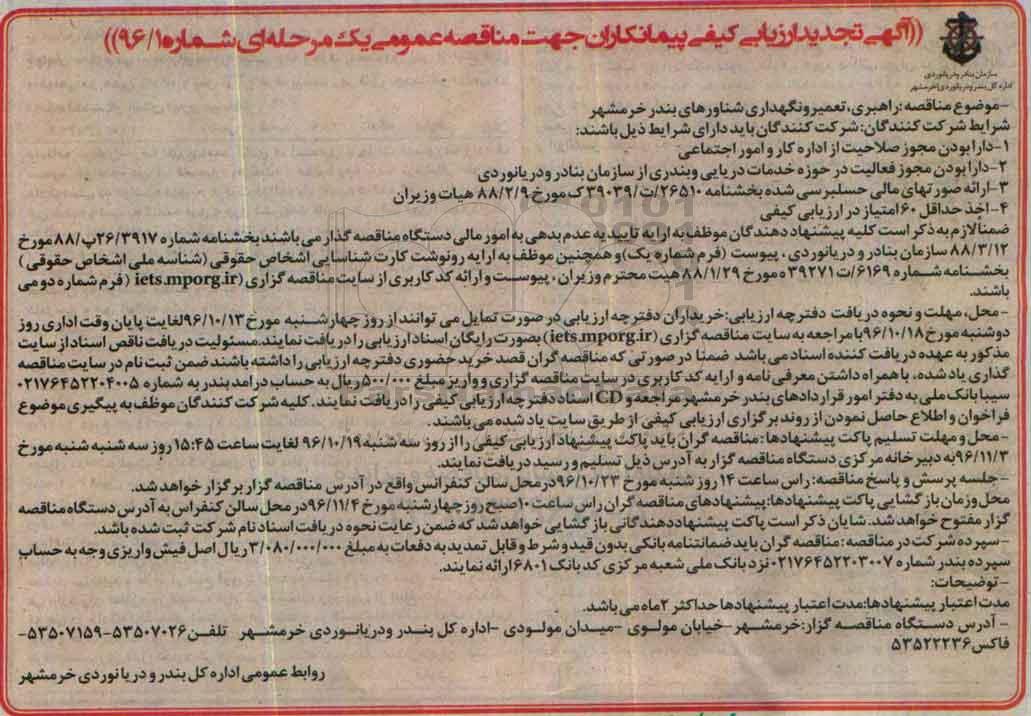 ((آگهی تجدید ارزیابی کیفی پیمانکاران جهت مناقصه عمومی یک مرحله ای شماره ۹۶/۱))
سازمان بنادر و دریانوردی
اداره کل بندر و دریانوردی خرمشهر
-موضوع مناقصه: راهبری، تعمیر و نگهداری شناورهای بندر خرمشهر
شرایط شرکت کنندگان: شرکت کنندگان باید دارای شرایط ذیل باشند:
۱-دارا بودن مجوز صلاحیت از اداره کار و امور اجتماعی
۲-دارا بودن مجوز فعالیت در حوزه خدمات دریایی وبندری از سازمان بنادر ودریانوردی
۳-ارائه صورتهای مالی حسابرسی شده بخشنامه ۲۶۵۱۰/ت/۳۹۰۳۹ ک مورخ ۸۸/۲/۹ هیات وزیران
۴-اخذ حداقل ۶۰ امتیاز در ارزیابی کیفی
ضمنا لازم به ذکر است کلیه پیشنهاد دهندگان موظف به ارایه تاییدیه عدم بدهی به امور مالی دستگاه مناقصه گذار می باشند بخشنامه شماره ۲۶/۳۹۱۷پ/۸۸ مورخ
۸۸/۳/۱۲ سازمان بنادر و دریانوردی، پیوست (فرم شماره یک) و همچنین موظف به ارایه رونوشت کارت شناسایی اشخاص حقوقی (شناسه ملی اشخاص حقوقی)
بخشنامه شماره ۶۱۶۹/ت ۳۹۲۷۱ ه مورخ ۸۸/۱/۲۹ هیت محترم وزیران، پیوست و ارائه کد کاربری از سایت مناقصه گزاری (iets.mporg.ir) (فرم شماره دو می
باشند.
-محل، مهلت و نحوه دریافت دفترچه ارزیابی: خریداران دفترچه ارزیابی در صورت تمایل می توانند از روز چهارشنبه مورخ ۹۶/۱۰/۱۳ لغایت پایان وقت اداری روز
دوشنبه مورخ ۹۶/۱۰/۱۸ با مراجعه به سایت مناقصه گزاری (iets.mporg.ir) بصورت رایگان اسناد ارزیابی را دریافت نمایند. مسئولیت دریافت ناقص اسناد از سایت
مذکور به عهده دریافت کننده اسناد می باشد ضمنا در صورتی که مناقصه گران قصد خرید حضوری دفترچه ارزیابی را داشته باشند ضمن ثبت نام در سایت مناقصه
گذاری یاد شده، با همراه داشتن معرفی نامه و ارایه کد کاربری در سایت مناقصه گزاری و واریز مبلغ ۵۰۰/۰۰۰ ریال به حساب درامد بندر به شماره ۰۲۱۷۶۴۵۲۲۰۴۰۰۵
سیبا بانک ملی به دفتر امور قراردادهای بندر خرمشهر مراجعه و CD اسناد دفترچه ارزیابی کیفی را دریافت نمایند. کلیه شرکت کنندگان موظف به پیگیری موضوع
فراخوان و اطلاع حاصل نمودن از روند برگزاری ارزیابی کیفی از طریق سایت یاد شده می باشند.
-محل و مهلت تسلیم پاکت پیشنهادها: مناقصه گران باید پاکت پیشنهاد ارزیابی کیفی را از روز سه شنبه ۹۶/۱۰/۱۹ لغایت ساعت ۱۵:۴۵ روز سه شنبه شنبه مورخ
۹۶/۱۱/۳ به دبیرخانه مرکزی دستگاه مناقصه گزار به آدرس ذیل تسلیم و رسید دریافت نمایند.
-جلسه پرسش و پاسخ مناقصه: راس ساعت ۱۴ روز شنبه مورخ ۹۶/۱۰/۲۳ در محل سالن کنفرانس واقع در آدرس مناقصه گزار برگزار خواهد شد.
محل وزمان بازگشایی پاکت پیشنهادها: پیشنهادهای مناقصه گران راس ساعت ۱۰ صبح روز چهارشنبه مورخ ۹۶/۱۱/۴ در محل سالن کنفراس به آدرس دستگاه مناقصه
گزار مفتوح خواهد شد. شایان ذکر است پاکت پیشنهاد دهندگانی بازگشایی خواهد شد که ضمن رعایت نحوه دریافت اسناد نام شرکت ثبت شده باشد.
-سپرده شرکت در مناقصه: مناقصه گران باید ضمانتنامه بانکی بدون قید و شرط و قابل تمدید به دفعات به مبلغ ۳/۰۸۰/۰۰۰/۰۰۰ ریال اصل فیش واریزی وجه به حساب
سپرده بندر شماره ۰۲۱۷۶۴۵۲۲۰۳۰۰۷ نزد بانک ملی شعبه مرکزی کد بانک ۶۸۰۱ ارائه نمایند.
-توضیحات:
مدت اعتبار پیشنهادها: مدت اعتبار پیشنهادها حداکثر ۲ماه می باشد.
- آدرس دستگاه مناقصه گزار: خرمشهر -خیابان مولوی -میدان مولودی -اداره کل بندر ودریانوردی خرمشهر تلفن ۵۳۵۰۷۰۲۶-۵۳۵۰۷۱۵۹-
فاکس ۵۳۵۲۲۲۳۶
روابط عمومی اداره کل بندر و دریانوردی خرمشهر